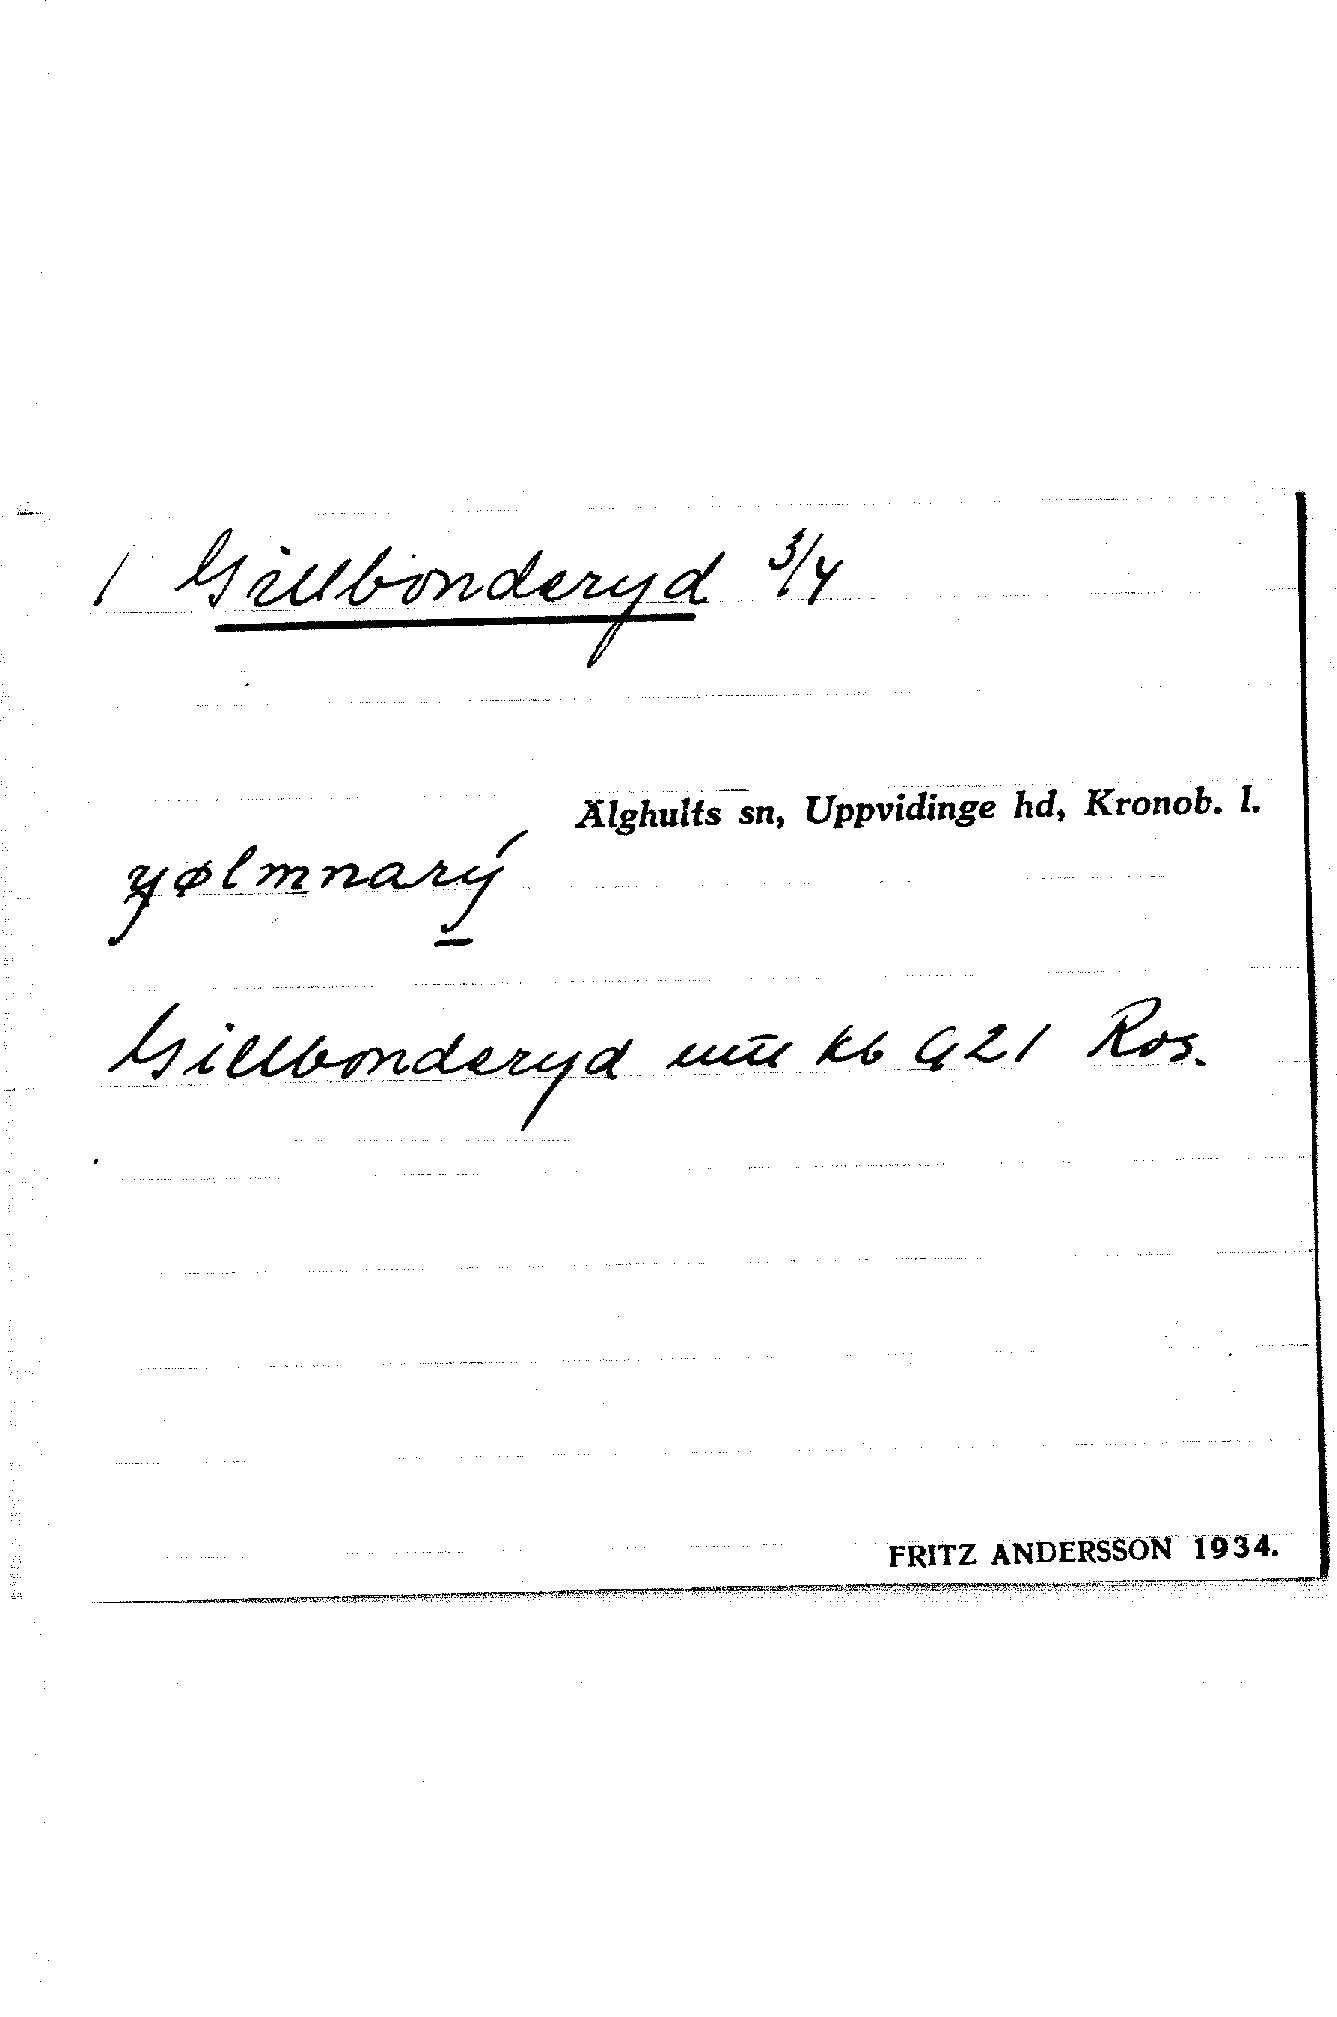 1 Gillbonderyd 3/4
Älghults sn, Uppvidinge hd, Kronob. l.
yølmnarý
Gillbonderyd kb G21 Ros.
FRITZ ANDERSSON 1934.